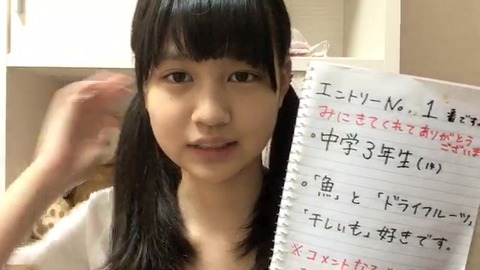 エントリーNo. 1 番です。
みにきてくれてありがとう
ございま
。中学3年生(14)
。「魚」と「ドライフルーツ」
「干しいも」好きです。
※コメントなど